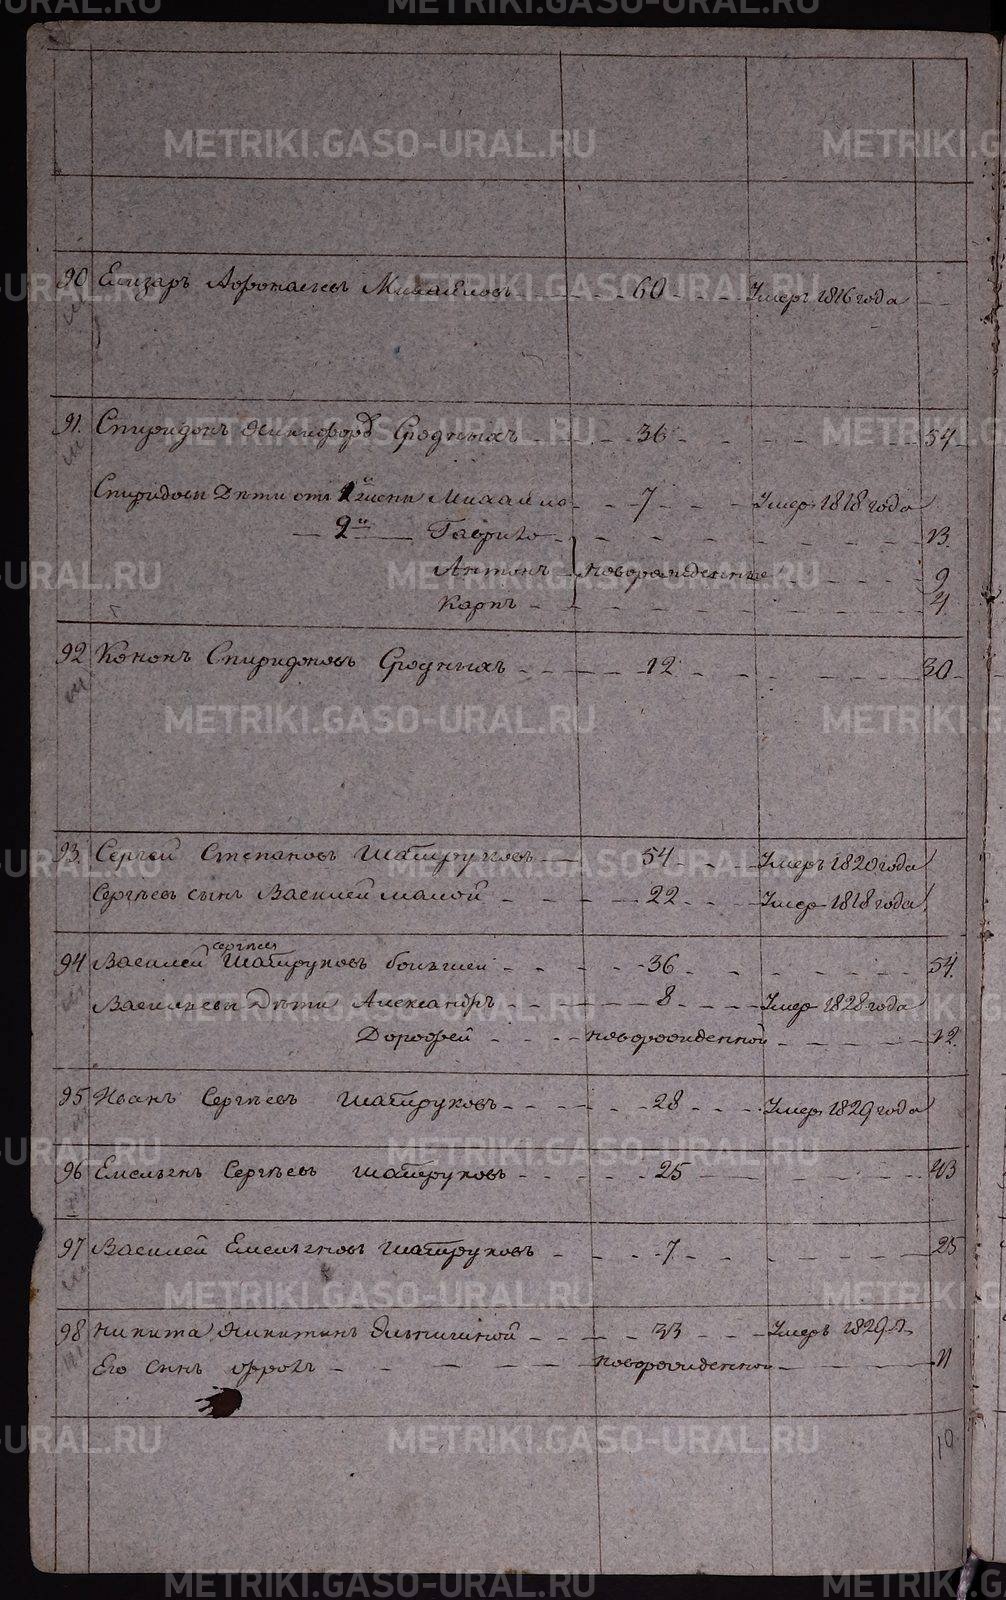 90 Елизаръ Афонасьевъ Михайловъ 60 Умеръ 1816 года
91. Спиридонъ Никифоровъ Сродныхъ 36 54
Спиридоны Дѣти отъ 1й жены Михайло 7 Умер. 1818 года
2й Гаврило 13.
Антонъ новорожденные 9
Карпъ 4
92 Кононъ Спиридоновъ Сродныхъ 12 30
93. Сергѣй Степановъ Шатруковъ 54 Умеръ 1820 года
Сергѣевъ сынъ Василей малой 22 Умер 1818 года
сергѣевъ
94 Василей Шатруковъ большей 36 54.
Васильевы Дѣти Александръ 8 Умер 1828 года
Дорофей новорожденной 12.
95 Иванъ Сергѣевъ Шатруковъ 28 Умеръ 1829 года
96 Емельянъ Сергѣевъ Шатруковъ 25 43
97 Василей Емельяновъ Шатруковъ 7 25
98 Никита Никитинъ 33 Умеръ 1829 г.
Его сынъ Фролъ новорожденной 11
10
METRIKI.GASO-URAL.RU